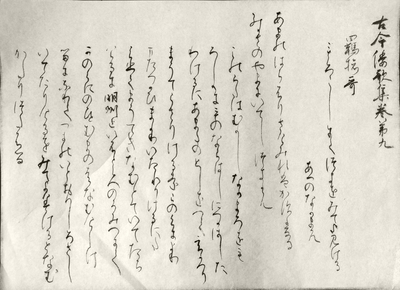 古今倭歌集巻第九
羇旅哥
もろこしにて月をみてよみける
あへのなかまろ
あまのはらふりさけみれはかすかなる
みかさのやまにいてし月かも
このうたはむかしなかまろを
もろこしにものならはしにつかはした
りけるにあまたのとしをへてえかへり
まうてこさりけるをこのくにより
又つかひまかりいたりけるにたく
ひてまうてきなむとていてたち
けるに明州といふところのうみへにて
かのくにのひとむまのはなむけし
けりよるになりて月のいとおもしろくさし
いてたりけるをみてよめるとなむ
かたりつたふる